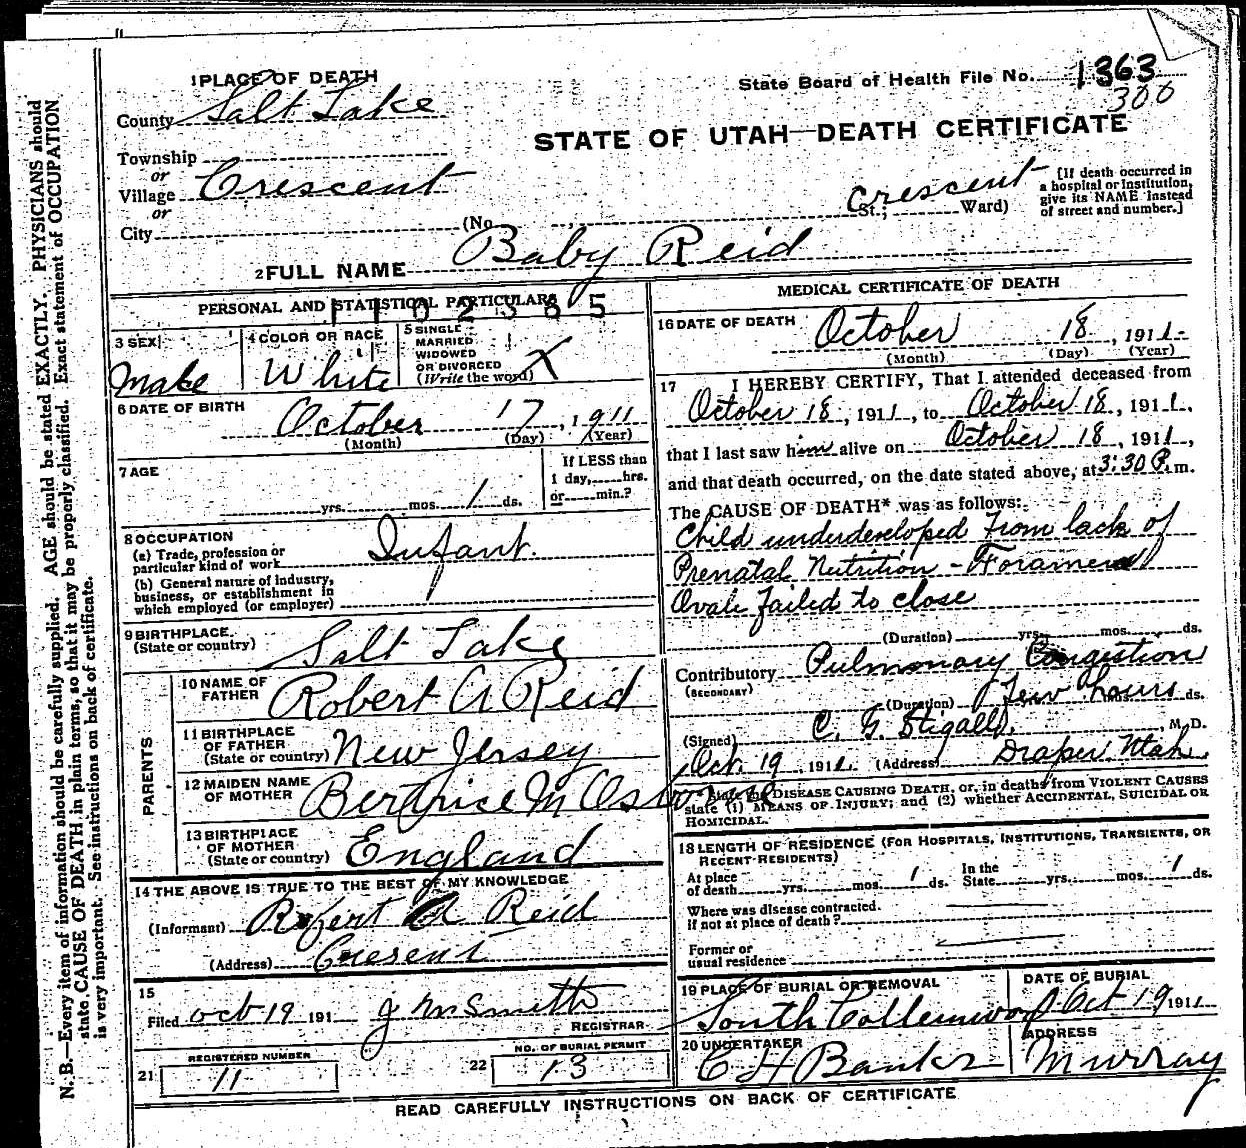 1 PLACE OF DEATH
State Board of Health File No. 1363
300
County Salt Lake
STATE OF UTAH—DEATH CERTIFICATE
Township
or
Village Crescent
or
City (No. , Crescent St.; Ward)
[If death occurred in
a hospital or institution,
give its NAME instead
of street and number.]
2 FULL NAME Baby Reid
PERSONAL AND STATISTICAL PARTICULARS
1102385
3 SEX Male
4 COLOR OR RACE White
5 SINGLE
MARRIED
WIDOWED
OR DIVORCED
(Write the word) X
6 DATE OF BIRTH
October 17, 1911
(Month) (Day) (Year)
7 AGE
yrs. mos. 1 ds.
If LESS than
1 day, hrs.
or min.?
8 OCCUPATION
(a) Trade, profession or
particular kind of work Infant.
(b) General nature of industry,
business, or establishment in
which employed (or employer)
9 BIRTHPLACE
(State or country) Salt Lake
PARENTS
10 NAME OF
FATHER Robert A Reid
11 BIRTHPLACE
OF FATHER
(State or country) New Jersey
12 MAIDEN NAME
OF MOTHER Bertrice M Osborne
13 BIRTHPLACE
OF MOTHER
(State or country) England
14 THE ABOVE IS TRUE TO THE BEST OF MY KNOWLEDGE
(Informant) Robert A Reid
(Address) Cresent
15
Filed Oct 19 191 J M Smith
REGISTRAR
21 REGISTERED NUMBER
11
22 NO. OF BURIAL PERMIT
13
MEDICAL CERTIFICATE OF DEATH
16 DATE OF DEATH October 18, 1911
(Month) (Day) (Year)
17 I HEREBY CERTIFY, That I attended deceased from
October 18, 1911, to October 18, 1911,
that I last saw him alive on October 18, 1911,
and that death occurred, on the date stated above, at 3:30 P.m.
The CAUSE OF DEATH* was as follows:
Child underdeveloped from lack of
Prenatal Nutrition - Foramen
Ovale failed to close
(Duration) yrs. mos. ds.
Contributory Pulmonary Congestion
(SECONDARY)
(Duration) Few hours mos. ds.
(Signed) C. G. Stigall, M.D.
Oct. 19, 1911. (Address) Draper Utah
State the DISEASE CAUSING DEATH, or, in deaths from VIOLENT CAUSES
state (1) MEANS OF INJURY; and (2) whether ACCIDENTAL, SUICIDAL OR
HOMICIDAL.
18 LENGTH OF RESIDENCE (FOR HOSPITALS, INSTITUTIONS, TRANSIENTS, OR
RECENT RESIDENTS)
At place
of death yrs. mos. 1 ds.
In the
State yrs. mos. 1 ds.
Where was disease contracted
if not at place of death?
Former or
usual residence
19 PLACE OF BURIAL OR REMOVAL
South Cottenwood
DATE OF BURIAL
Oct 19 1911
20 UNDERTAKER
C H Banks
ADDRESS
Murray
READ CAREFULLY INSTRUCTIONS ON BACK OF CERTIFICATE
N. B.—Every item of information should be carefully supplied. AGE should be stated EXACTLY. PHYSICIANS should
state CAUSE OF DEATH in plain terms, so that it may be properly classified. Exact statement of OCCUPATION
is very important. See instructions on back of certificate.